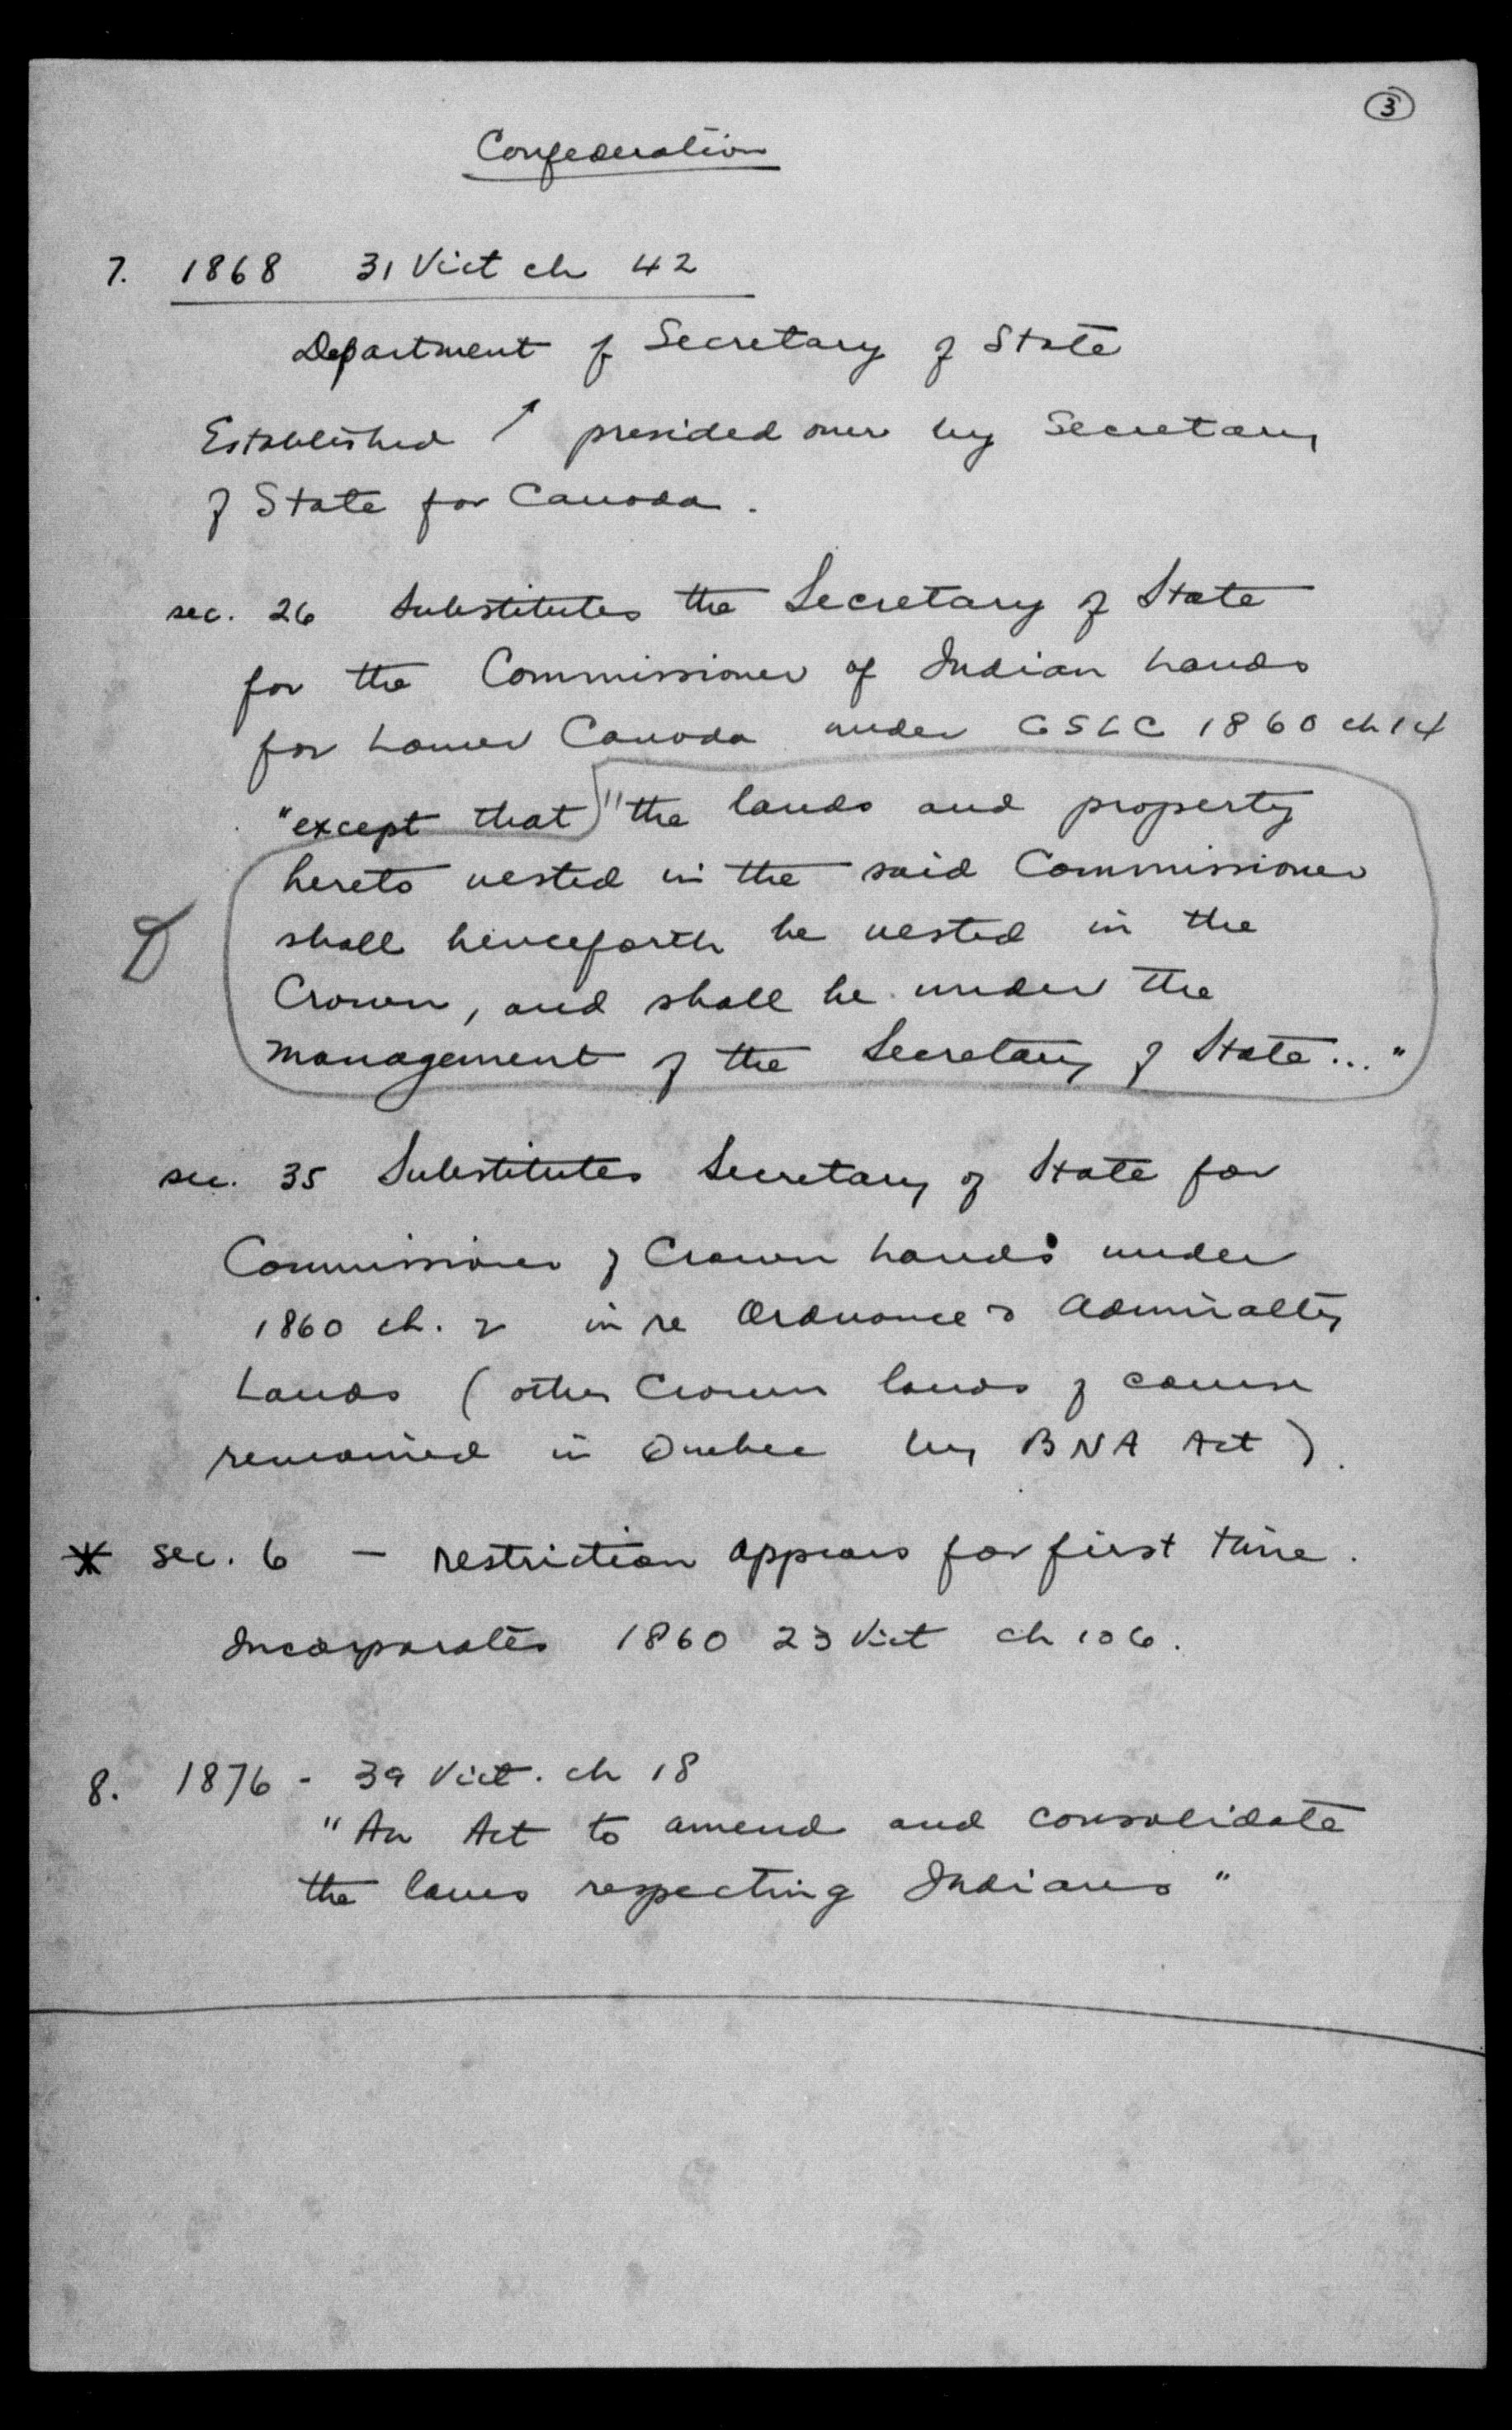 3
Confederation
7. 1868 31 Vict ch 42
Department of Secretary of State
Established ↑ presided over by Secretary
of State for Canada.
sec. 26 Substitutes the Secretary of State
for the Commissioner of Indian Lands
for Lower Canada under CSLC 1860 ch 14
"except that "the lands and property
hereto vested in the said Commissioner
shall henceforth be vested in the
Crown, and shall be under the
management of the Secretary of State..."
sec. 35 Substitutes Secretary of State for
Commissioner of Crown Lands under
1860 ch. 2 in re Ordnance & Admiralty
Lands (other Crown lands of course
remained in Quebec by BNA Act).
* sec. 6 — restriction appears for first time.
Incorporates 1860 23 Vict ch 106.
8. 1876 - 39 Vict. ch 18
"An Act to amend and consolidate
the laws respecting Indians"